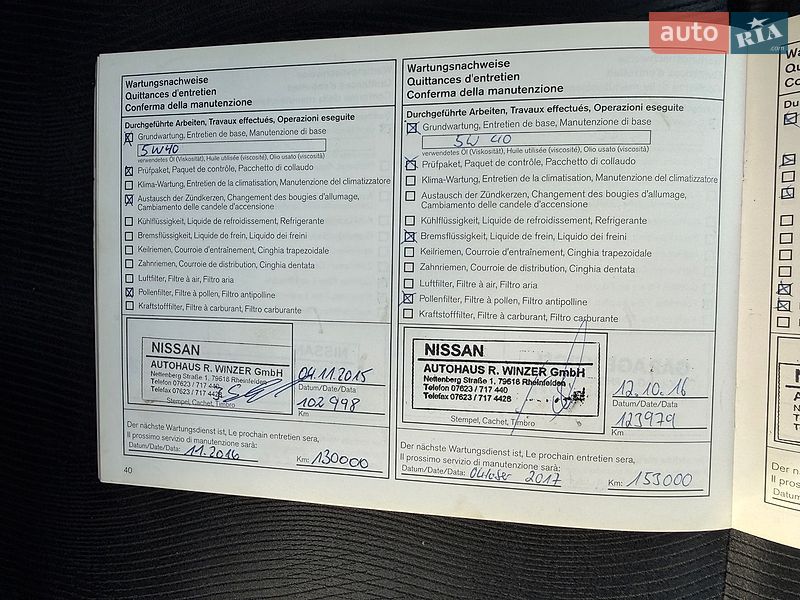 auto RIA .com
Wartungsnachweise
Quittances d'entretien
Conferma della manutenzione
Durchgeführte Arbeiten, Travaux effectués, Operazioni eseguite
Grundwartung, Entretien de base, Manutenzione di base
5W40
verwendetes Öl (Viskosität), Huile utilisée (viscosité), Olio usato (viscosità)
Prüfpaket, Paquet de contrôle, Pacchetto di collaudo
Klima-Wartung, Entretien de la climatisation, Manutenzione del climatizzatore
Austausch der Zündkerzen, Changement des bougies d'allumage,
Cambiamento delle candele d'accensione
Kühlflüssigkeit, Liquide de refroidissement, Refrigerante
Bremsflüssigkeit, Liquide de frein, Liquido dei freini
Keilriemen, Courroie d'entraînement, Cinghia trapezoidale
Zahnriemen, Courroie de distribution, Cinghia dentata
Luftfilter, Filtre à air, Filtro aria
Pollenfilter, Filtre à pollen, Filtro antipolline
Kraftstofffilter, Filtre à carburant, Filtro carburante
NISSAN
AUTOHAUS R. WINZER GmbH
Nettenberg Straße 1, 79618 Rheinfelden
Telefon 07623 / 717 440
Telefax 07623 / 717 4428
Stempel, Cachet, Timbro
04.11.2015
Datum/Date/Data
102998
Km
Der nächste Wartungsdienst ist, Le prochain entretien sera,
Il prossimo servizio di manutenzione sarà:
Datum/Date/Data: 11.2016 Km: 130000
40
Wartungsnachweise
Quittances d'entretien
Conferma della manutenzione
Durchgeführte Arbeiten, Travaux effectués, Operazioni eseguite
Grundwartung, Entretien de base, Manutenzione di base
5W40
verwendetes Öl (Viskosität), Huile utilisée (viscosité), Olio usato (viscosità)
Prüfpaket, Paquet de contrôle, Pacchetto di collaudo
Klima-Wartung, Entretien de la climatisation, Manutenzione del climatizzatore
Austausch der Zündkerzen, Changement des bougies d'allumage,
Cambiamento delle candele d'accensione
Kühlflüssigkeit, Liquide de refroidissement, Refrigerante
Bremsflüssigkeit, Liquide de frein, Liquido dei freini
Keilriemen, Courroie d'entraînement, Cinghia trapezoidale
Zahnriemen, Courroie de distribution, Cinghia dentata
Luftfilter, Filtre à air, Filtro aria
Pollenfilter, Filtre à pollen, Filtro antipolline
Kraftstofffilter, Filtre à carburant, Filtro carburante
NISSAN
AUTOHAUS R. WINZER GmbH
Nettenberg Straße 1, 79618 Rheinfelden
Telefon 07623 / 717 440
Telefax 07623 / 717 4428
Stempel, Cachet, Timbro
12.10.16
Datum/Date/Data
123929
Km
Der nächste Wartungsdienst ist, Le prochain entretien sera,
Il prossimo servizio di manutenzione sarà:
Datum/Date/Data: Oktober 2017 Km: 153000